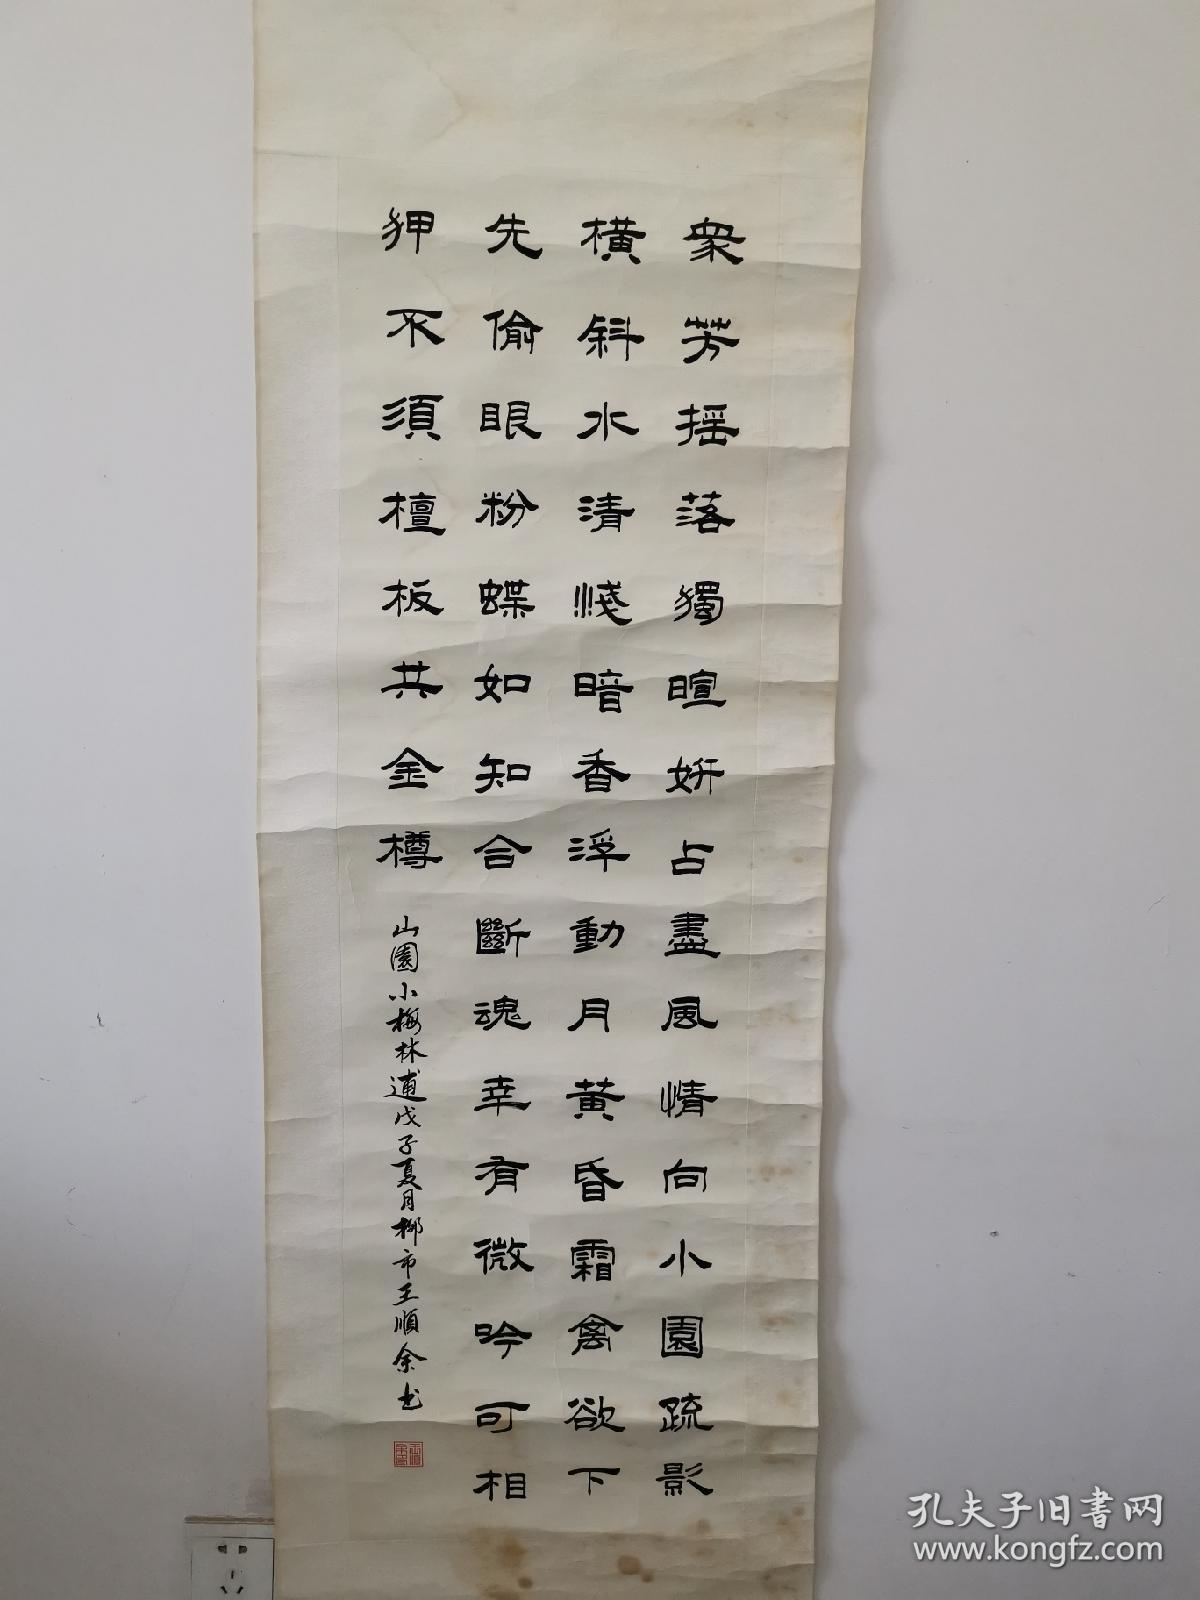 衆芳摇落獨暄妍占盡風情向小園疏影
橫斜水清淺暗香浮動月黃昏霜禽欲下
先偷眼粉蝶如知合斷魂幸有微吟可相
狎不須檀板共金樽
山園小梅林逋戊子夏月柳市王順余书
孔夫子旧書网
www.kongfz.com